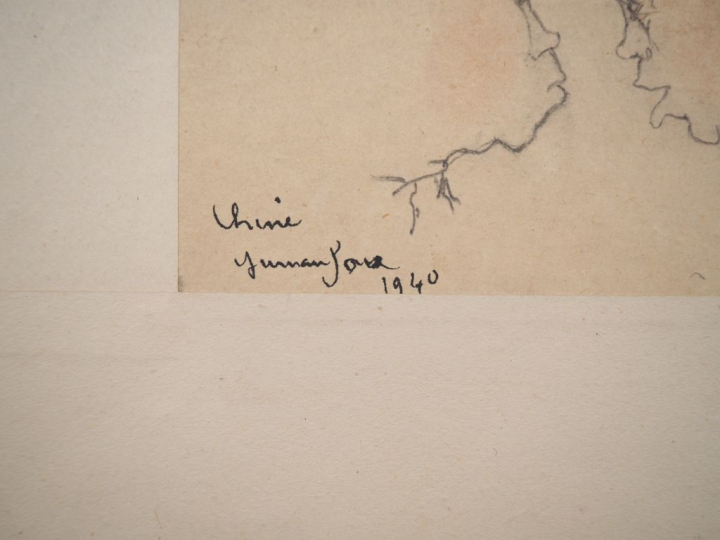 Chine
Yunnan Fou
1940